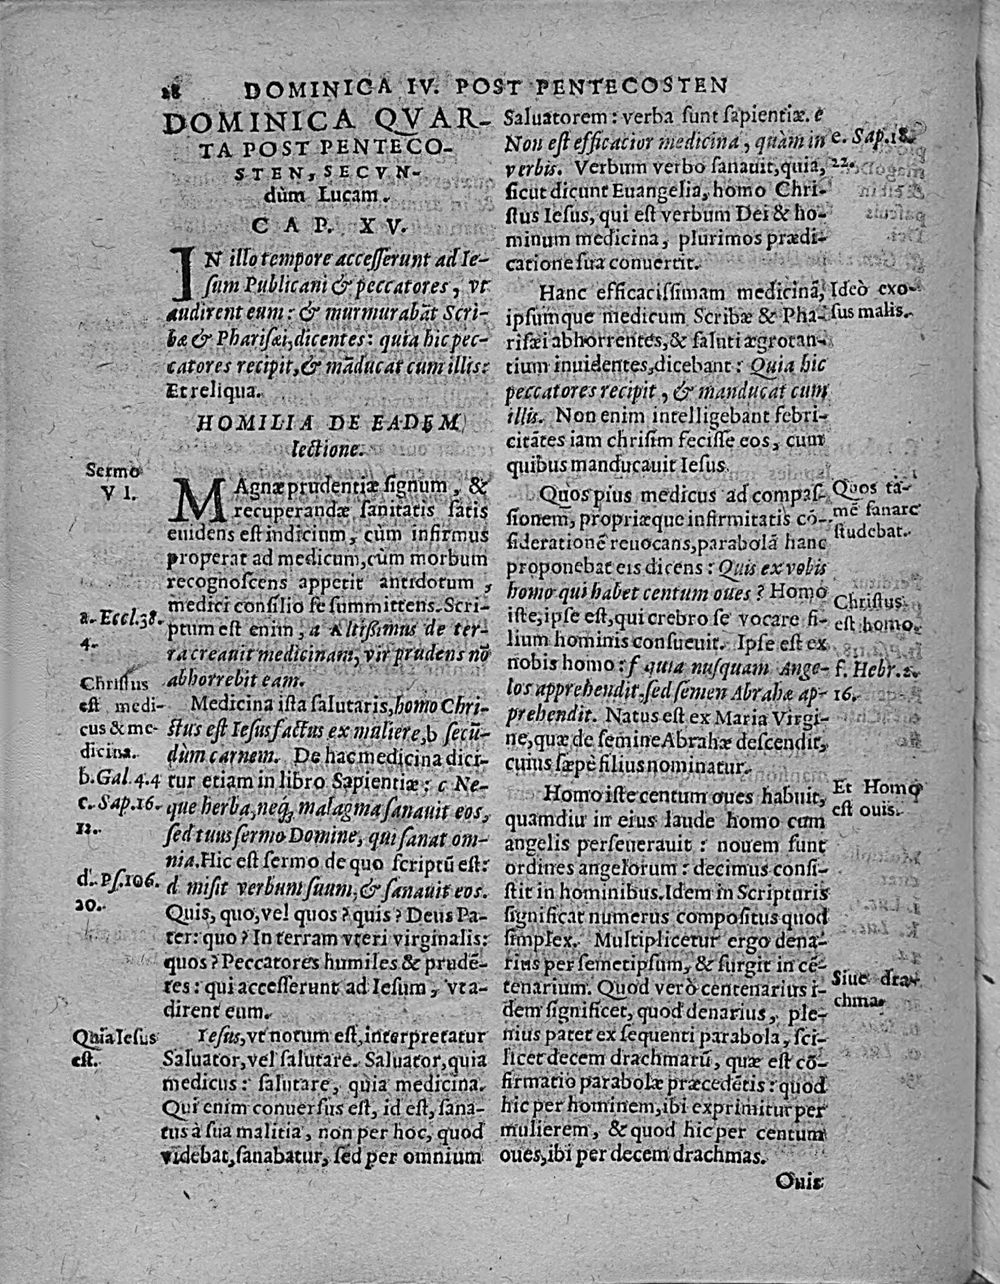 28 DOMINICA IV. POST PENTECOSTEN
DOMINICA QVAR-
TA POST PENTECO-
STEN, SECVN-
dùm Lucam.
CAP. XV.
IN illo tempore accesserunt ad Ie-
sum Publicani & peccatores, vt
audirent eum: & murmurabāt Scri-
bæ & Pharisæi, dicentes: quia hic pec-
catores recipit, & māducat cum illis:
Et reliqua.
HOMILIA DE EADEM
lectione.
Sermo
VI.
MAgnæ prudentiæ signum, &
recuperandæ sanitatis satis
euidens est indicium, cùm infirmus
properat ad medicum, cùm morbum
recognoscens appetit antidotum,
medici consilio se summittens. Scri-
ptum est enim, a Altissimus de ter-
ra creauit medicinam, vir prudens nō
abhorrebit eam.
a. Eccl. 38.
4.
Christus
est medi-
cus & me-
dicina.
b. Gal. 4. 4
c. Sap. 16.
12.
d. Ps. 106.
20.
Medicina ista salutaris, homo Chri-
stus est Iesus factus ex muliere, b secū-
dùm carnem. De hac medicina dici-
tur etiam in libro Sapientiæ: c Ne-
que herba, neq; malagma sanauit eos,
sed tuus sermo Domine, qui sanat om-
nia. Hic est sermo de quo scriptū est:
d misit verbum suum, & sanauit eos.
Quis, quo, vel quos? quis? Deus Pa-
ter: quo? In terram vteri virginalis:
quos? Peccatores humiles & prudē-
tes: qui accesserunt ad Iesum, vt au-
dirent eum.
Quia Iesus
est.
Iesus, vt notum est, interpretatur
Saluator, vel salutare. Saluator, quia
medicus: salutare, quia medicina.
Qui enim conuersus est, id est, sana-
tus à sua malitia, non per hoc, quod
videbat, sanabatur, sed per omnium
Saluatorem: verba sunt sapientiæ. e
Non est efficacior medicina, quàm in
verbis. Verbum verbo sanauit, quia,
sicut dicunt Euangelia, homo Chri-
stus Iesus, qui est verbum Dei & ho-
minum medicina, plurimos prædi-
catione sua conuertit.
e. Sap. 18.
22.
Hanc efficacissimam medicinā,
ipsumque medicum Scribæ & Pha-
risæi abhorrentes, & saluti ægrotan-
tium inuidentes, dicebant: Quia hic
peccatores recipit, & manducat cum
illis. Non enim intelligebant febri-
citātes iam chrisim fecisse eos, cum
quibus manducauit Iesus.
Ideò exo-
sus malis.
Quos pius medicus ad compas-
sionem, propriæque infirmitatis cō-
siderationē reuocans, parabolā hanc
proponebat eis dicens: Quis ex vobis
homo qui habet centum oues? Homo
iste, ipse est, qui crebro se vocare fi-
lium hominis consueuit. Ipse est ex
nobis homo: f quia nusquam Ange-
los apprehendit, sed semen Abrahæ ap-
prehendit. Natus est ex Maria Virgi-
ne, quæ de semine Abrahæ descendit,
cuius sæpè filius nominatur.
Quos ta-
mē sanare
studebat.
Christus
est homo.
f. Hebr. 2.
16.
Homo iste centum oues habuit,
quamdiu in eius laude homo cum
angelis perseuerauit: nouem sunt
ordines angelorum: decimus consi-
stit in hominibus. Idem in Scripturis
significat numerus compositus quod
simplex. Multiplicetur ergo dena-
rius per semetipsum, & surgit in cē-
tenarium. Quod verò centenarius i-
dem significet, quod denarius, ple-
nius patet ex sequenti parabola, sci-
licet decem drachmarū, quæ est cō-
firmatio parabolæ præcedētis: quod
hic per hominem, ibi exprimitur per
mulierem, & quod hic per centum
oues, ibi per decem drachmas.
Et Homo
est ouis.
Siue dra-
chma.
Ouis